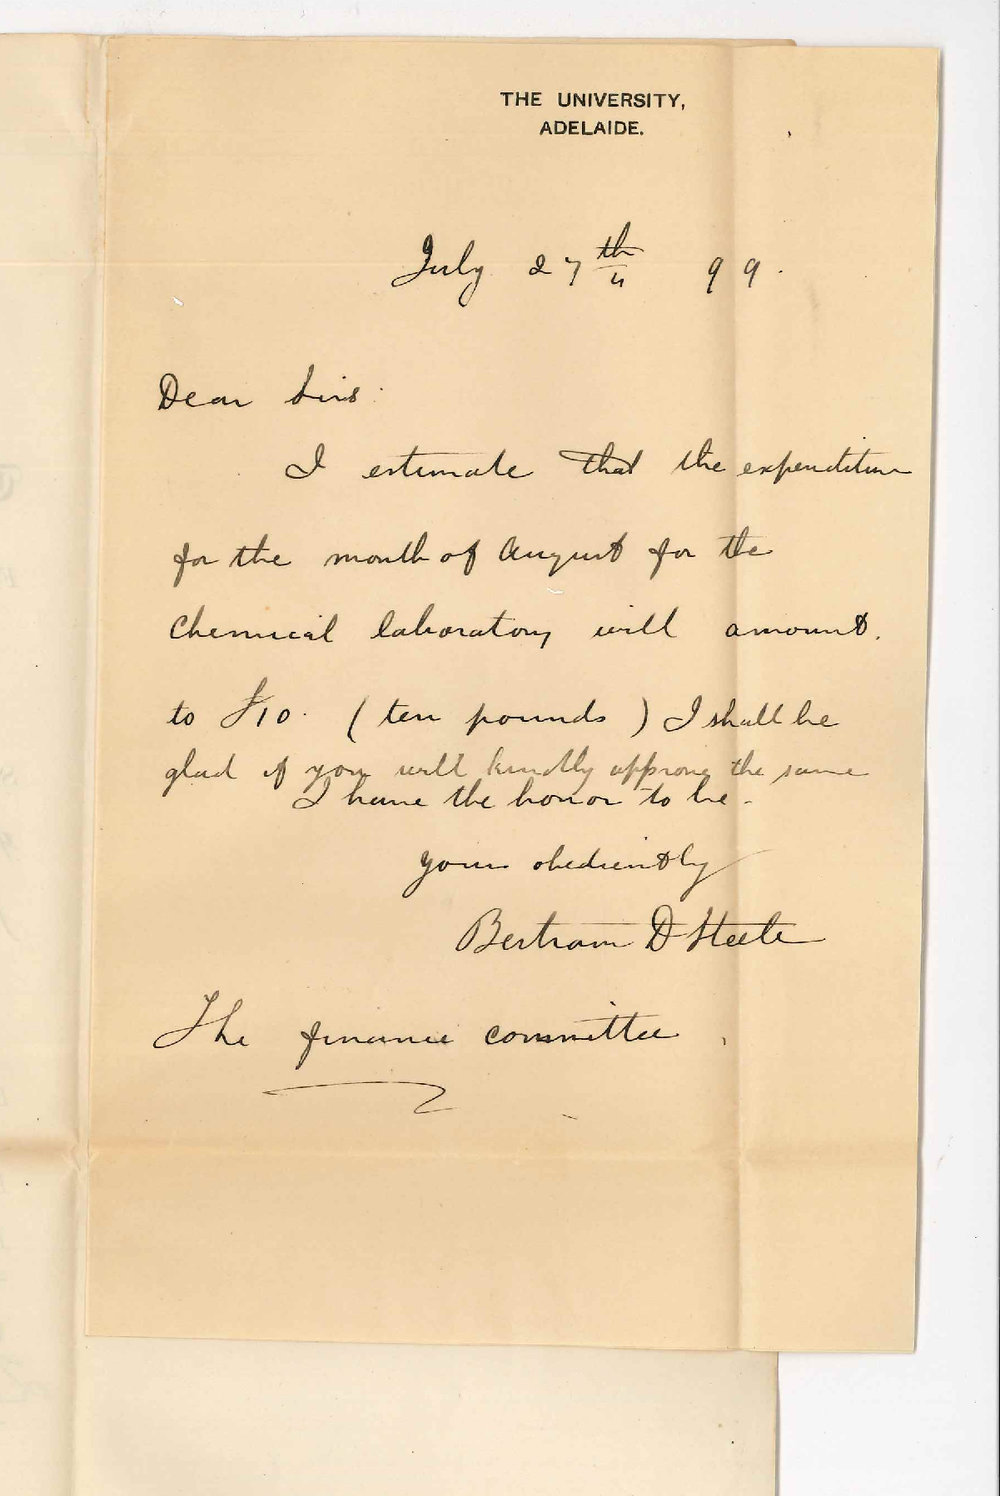 THE UNIVERSITY,
ADELAIDE.
July 27th 99.
Dear Sirs.
I estimate that the expenditure
for the month of August for the
Chemical laboratory will amount.
to £10. (ten pounds) I shall be
glad if you will kindly approve the same
I have the honor to be.
Yours obediently
Bertram D Steele
The finance committee.